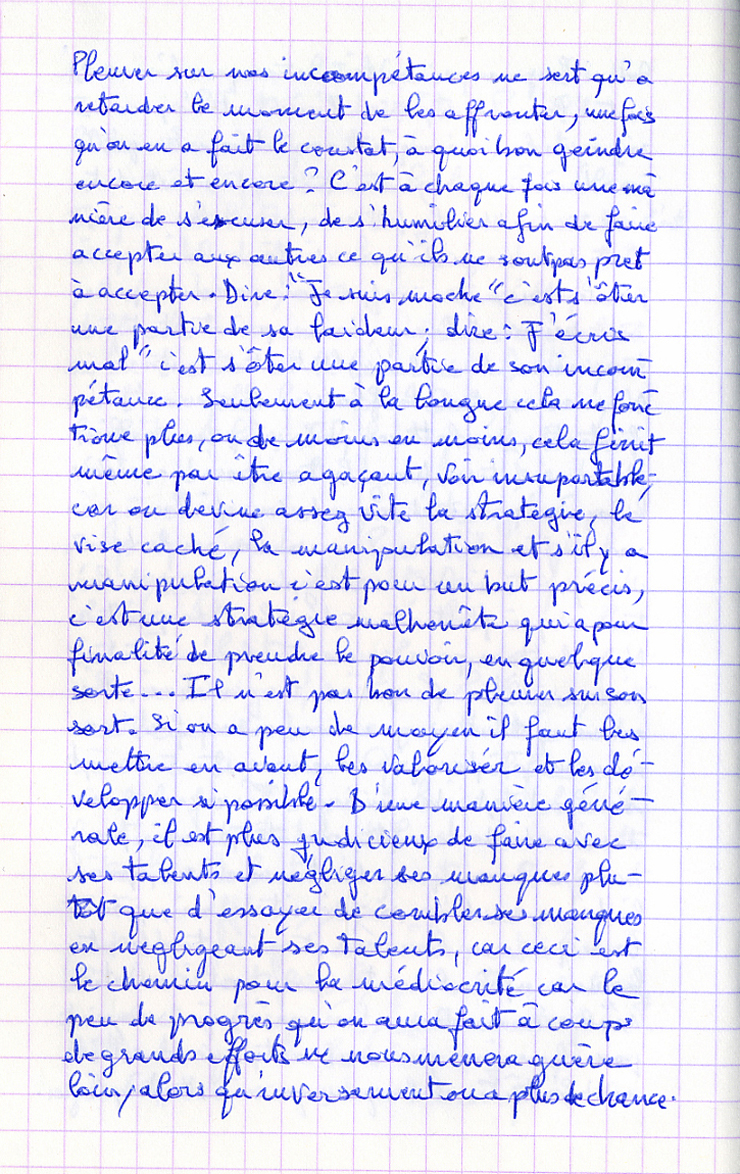 Pleurer sur nos incompétances ne sert qu'a
retarder le moment de les affronter, une fois
qu'on en a fait le constat, à quoi bon geindre
encore et encore ? C'est à chaque fois une ma
nière de s'excuser, de s'humilier afin de faire
accepter aux autres ce qu'ils ne sont pas pret
à accepter. Dire : "Je suis moche" c'est s'ôter
une partie de sa laideur ; dire : J'écris
mal" c'est s'ôter une partie de son incom
pétance. Seulement à la longue cela ne fonc
tione plus, ou de moins en moins, cela finit
même par être agaçant, voir insuportable,
car on devine assez vite la stratégie, le
vise caché, la manipulation et s'il y a
manipulation c'est pour un but précis,
c'est une stratégie malhonête qui a pour
finalité de prendre le pouvoir, en quelque
sorte... Il n'est pas bon de pleurer sur son
sort. Si on a peu de moyen il faut les
mettre en avant, les valoriser et les dé-
velopper si possible. D'une manière géné-
rale, il est plus judicieux de faire avec
ses talents et négliger ses manques plu-
tot que d'essayer de combler ses manques
en negligeant ses talents, car ceci est
le chemin pour la médiocrité car le
peu de progrès qu'on aura fait à coups
de grands efforts ne nous mènera guère
loin, alors qu'inversement on a plus de chance.